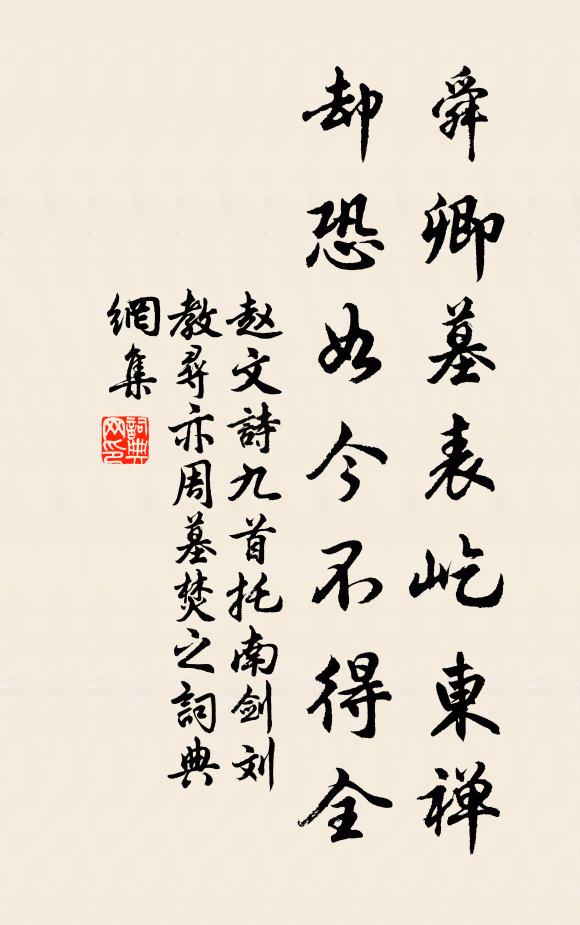 舜卿墓表屹東禅
却恐如今不得全
赵文詩九首托南劍刘
教尋亦周墓焚之詞典
網集
詞典
网印